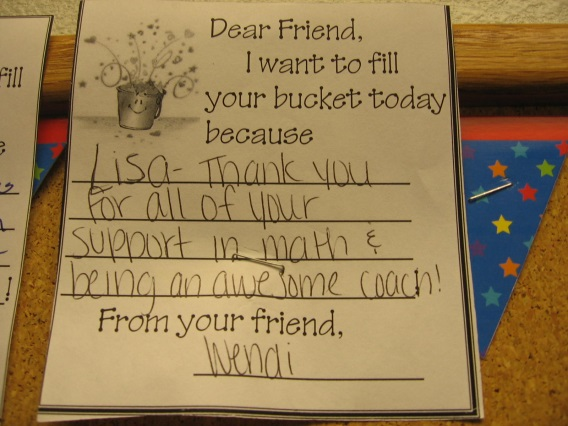 Dear Friend,
I want to fill
your bucket today
because
Lisa- Thank you
for all of your
support in math &
being an awesome coach!
From your friend,
Wendi
fill